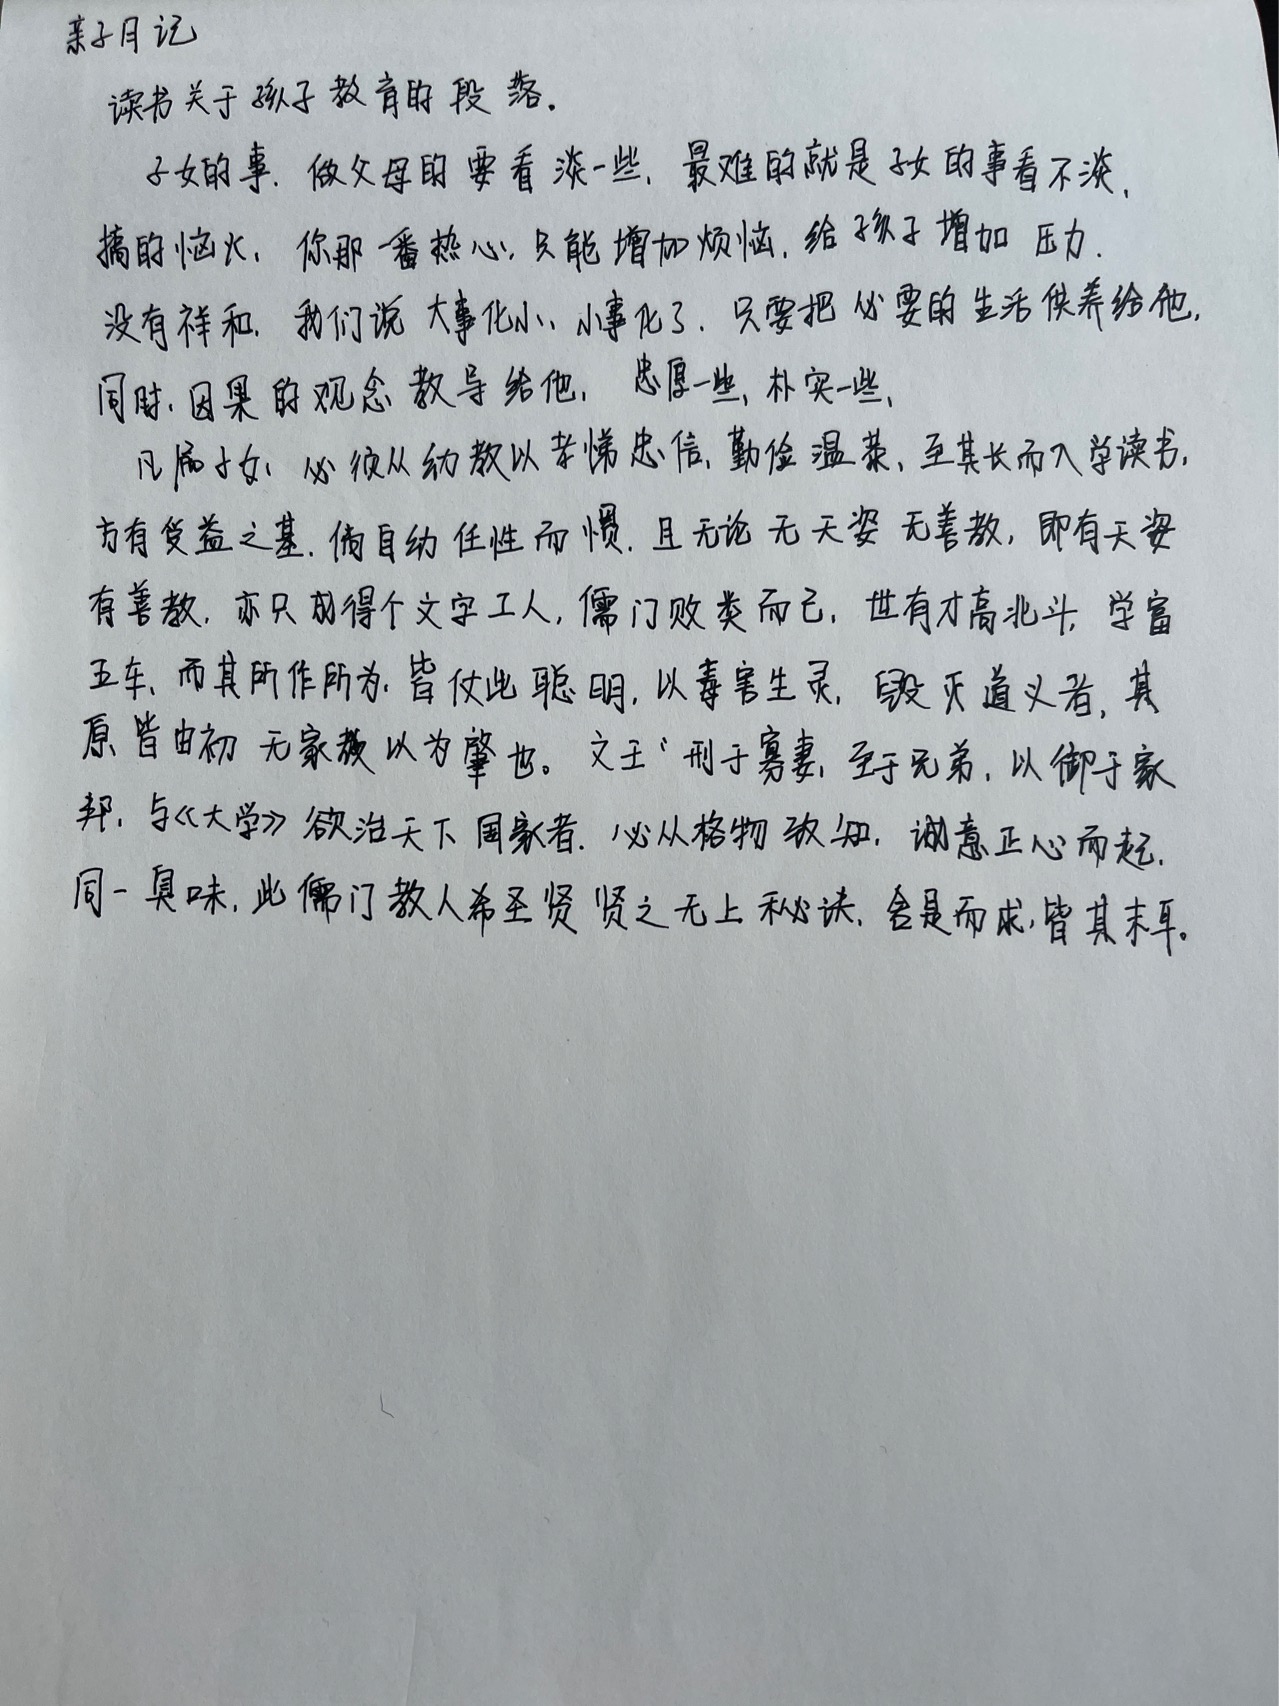 亲子月记
读书关于孩子教育的段落.
子女的事.做父母的要看淡一些,最难的就是子女的事看不淡,
搞的恼火,你那一番热心,只能增加烦恼,给孩子增加压力.
没有祥和.我们说大事化小、小事化了.只要把必要的生活供养给他,
同时,因果的观念教导给他,忠厚一些,朴实一些,
凡属子女,必须从幼教以孝悌忠信,勤俭温恭,至其长而入学读书,
方有受益之基.倘自幼任性而惯.且无论无天姿无善教,即有天姿
有善教.亦只成得个文字工人,儒门败类而已,世有才高北斗,学富
五车,而其所作所为,皆仗此聪明,以毒害生灵,毁灭道义者,其
原皆由初无家教以为肇也。文王‘刑于寡妻,至于兄弟,以御于家
邦,与《大学》欲治天下国家者.必从格物致知.诚意正心而起,
同一臭味,此儒门教人希圣贤贤之无上秘诀,舍是而求,皆其末耳。